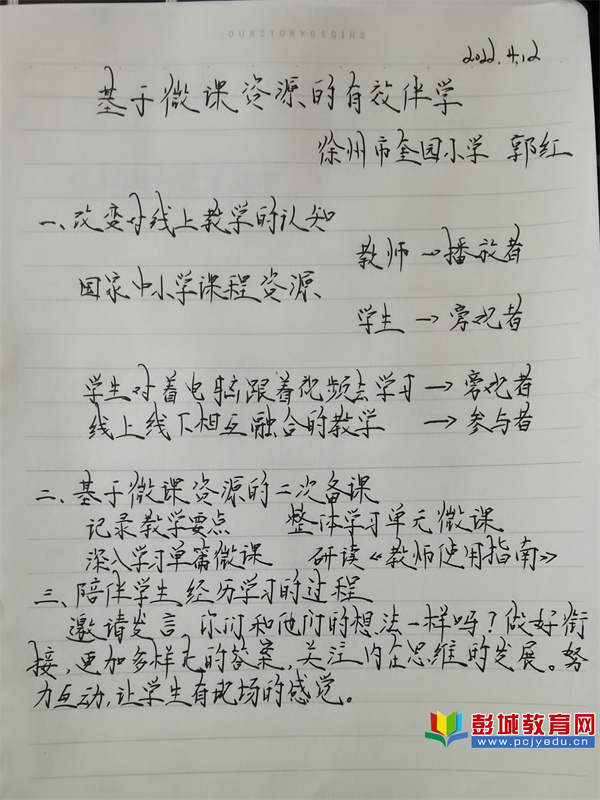 OURSTORYBEGINS
2022.4.12
基于微课资源的有效伴学
徐州市奎园小学 郭红
一、改变对线上教学的认知
教师→播放者
国家中小学课程资源
学生→旁观者
学生对着电脑跟着视频去学习→旁观者
线上线下相互融合的教学→参与者
二、基于微课资源的二次备课
记录教学要点 整体学习单元微课
深入学习单篇微课 研读《教师使用指南》
三、陪伴学生经历学习的过程
邀请发言 你们和他们的想法一样吗?做好衔
接,更加多样化的答案,关注内在思维的发展。努
力互动,让学生有现场的感觉。
彭城教育网
www.pcjyedu.cn